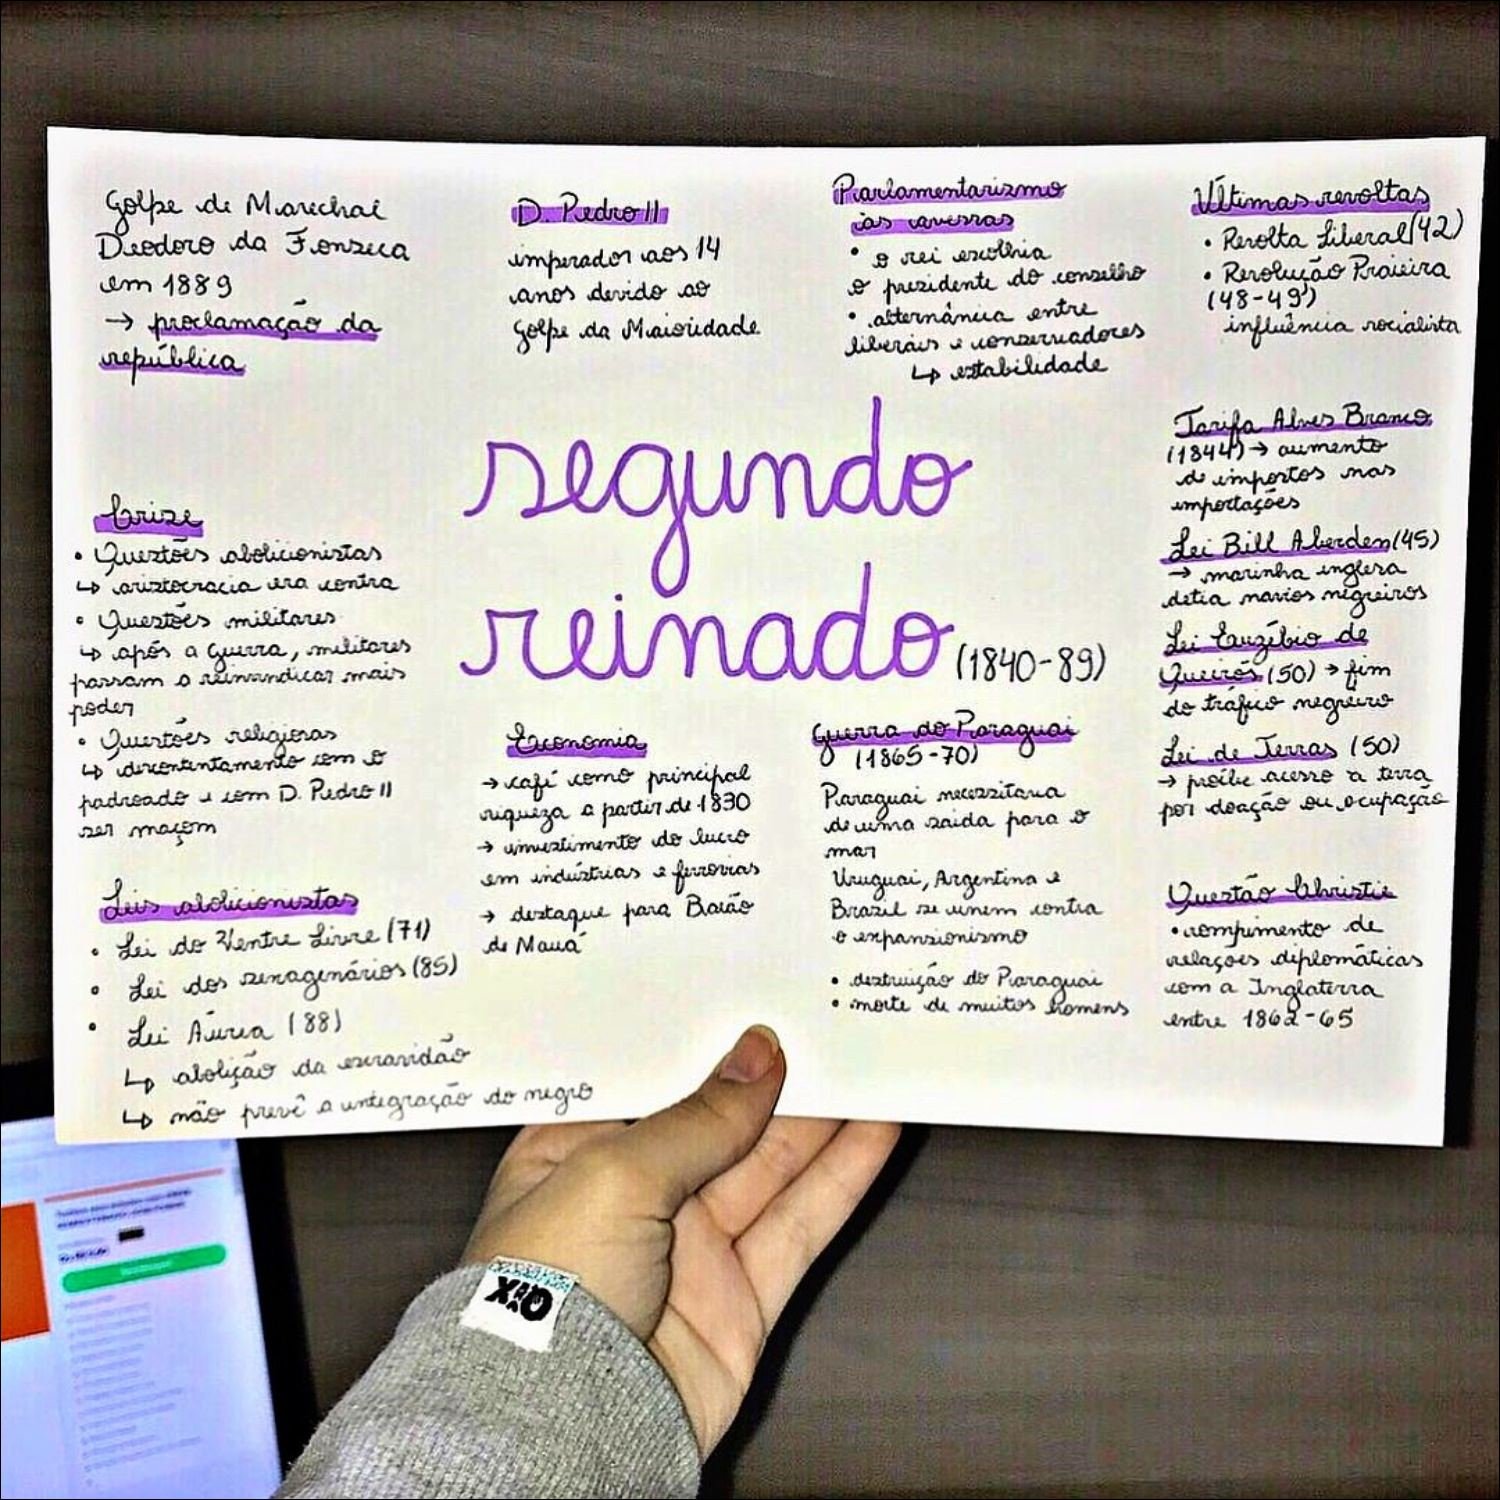 segundo
reinado (1840-89)
D. Pedro II
imperador aos 14
anos devido ao
golpe da Maioridade
Parlamentarismo
às avessas
• o rei escolhia
o presidente do conselho
• alternância entre
liberais e conservadores
↳ estabilidade
Últimas revoltas
• Revolta Liberal (42)
• Revolução Praieira
(48-49)
influência socialista
Tarifa Alves Branco
(1844) → aumento
de impostos nas
importações
Lei Bill Aberden (45)
→ marinha inglesa
detia navios negreiros
Lei Euzébio de
Queirós (50) → fim
do tráfico negreiro
Lei de Terras (50)
→ proíbe acesso a terra
por doação ou ocupação
Questão Christie
• rompimento de
relações diplomáticas
com a Inglaterra
entre 1862-65
Guerra do Paraguai
(1865-70)
Paraguai necessitava
de uma saída para o
mar
Uruguai, Argentina e
Brasil se unem contra
o expansionismo
• destruição do Paraguai
• morte de muitos homens
Economia
→ café como principal
riqueza a partir de 1830
→ investimento do lucro
em indústrias e ferrovias
→ destaque para Barão
de Mauá
Leis abolicionistas
• Lei do Ventre Livre (71)
• Lei dos sexagenários (85)
• Lei Áurea (88)
↳ abolição da escravidão
↳ não prevê a integração do negro
Crise
• Questões abolicionistas
↳ aristocracia era contra
• Questões militares
↳ após a guerra, militares
passam a reinvindicar mais
poder
• Questões religiosas
↳ descontentamento com o
padroado e com D. Pedro II
ser maçom
Golpe de Marechal
Deodoro da Fonseca
em 1889
→ proclamação da
república
QIX